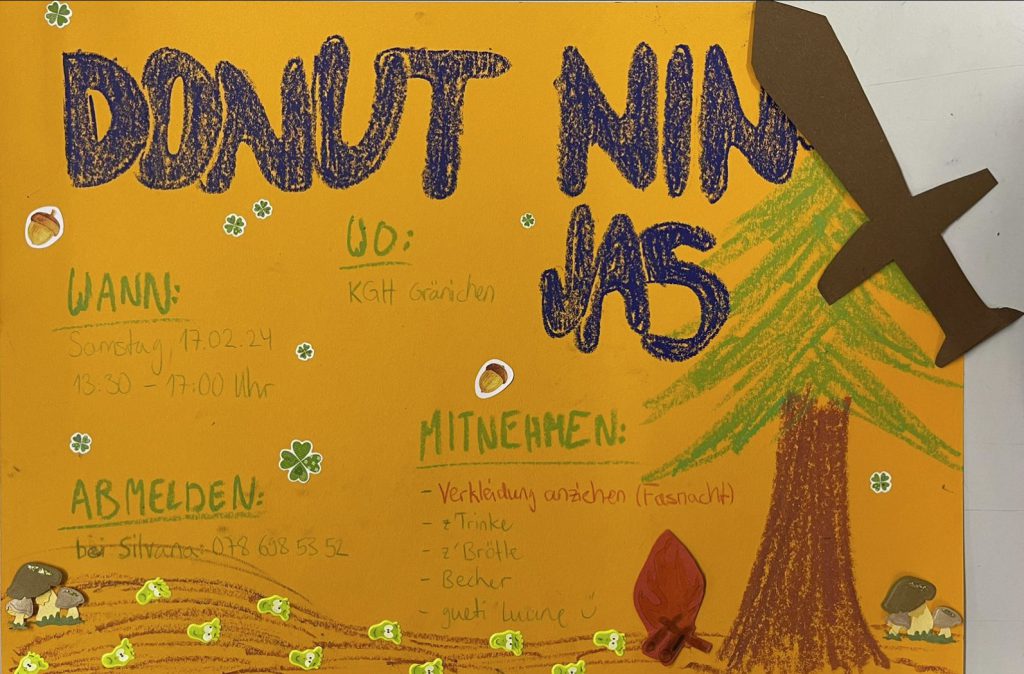 DONUT NIN
JAS
WANN:
Samstag, 17.02.24
13:30 - 17:00 Uhr
WO:
KGH Gränichen
ABMELDEN:
bei Silvana: 078 698 53 52
MITNEHMEN:
- Verkleidung anziehen (Fasnacht)
- z'Trinke
- z'Brötle
- Becher
- gueti Luune